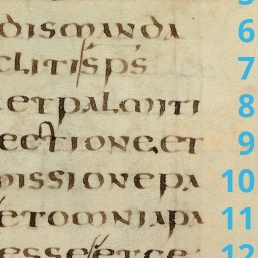 dismanda 6
clitisps 7
etpalmiti 8
ectione,et 9
missionepa 10
etomniapa 11
12